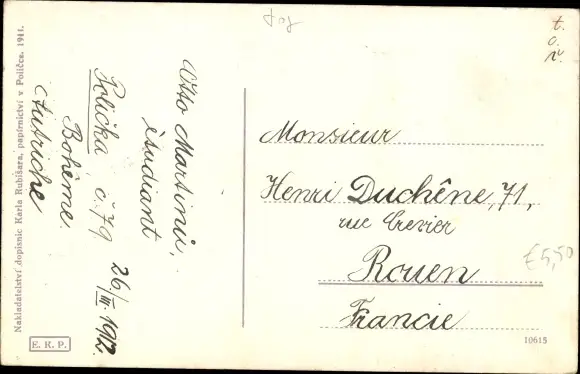 t.
o.
Nakladatelství dopisnic Karla Rubišara, papírnictví v Poličce. 1911.
Otto Martinů,
étudiant
Polička č. 79
Bohême
Autriche
26/III. 1912.
Monsieur
Henri Duchêne, 71,
rue Crevier
Rouen
Francie
€5,50
E. K. P.
10615